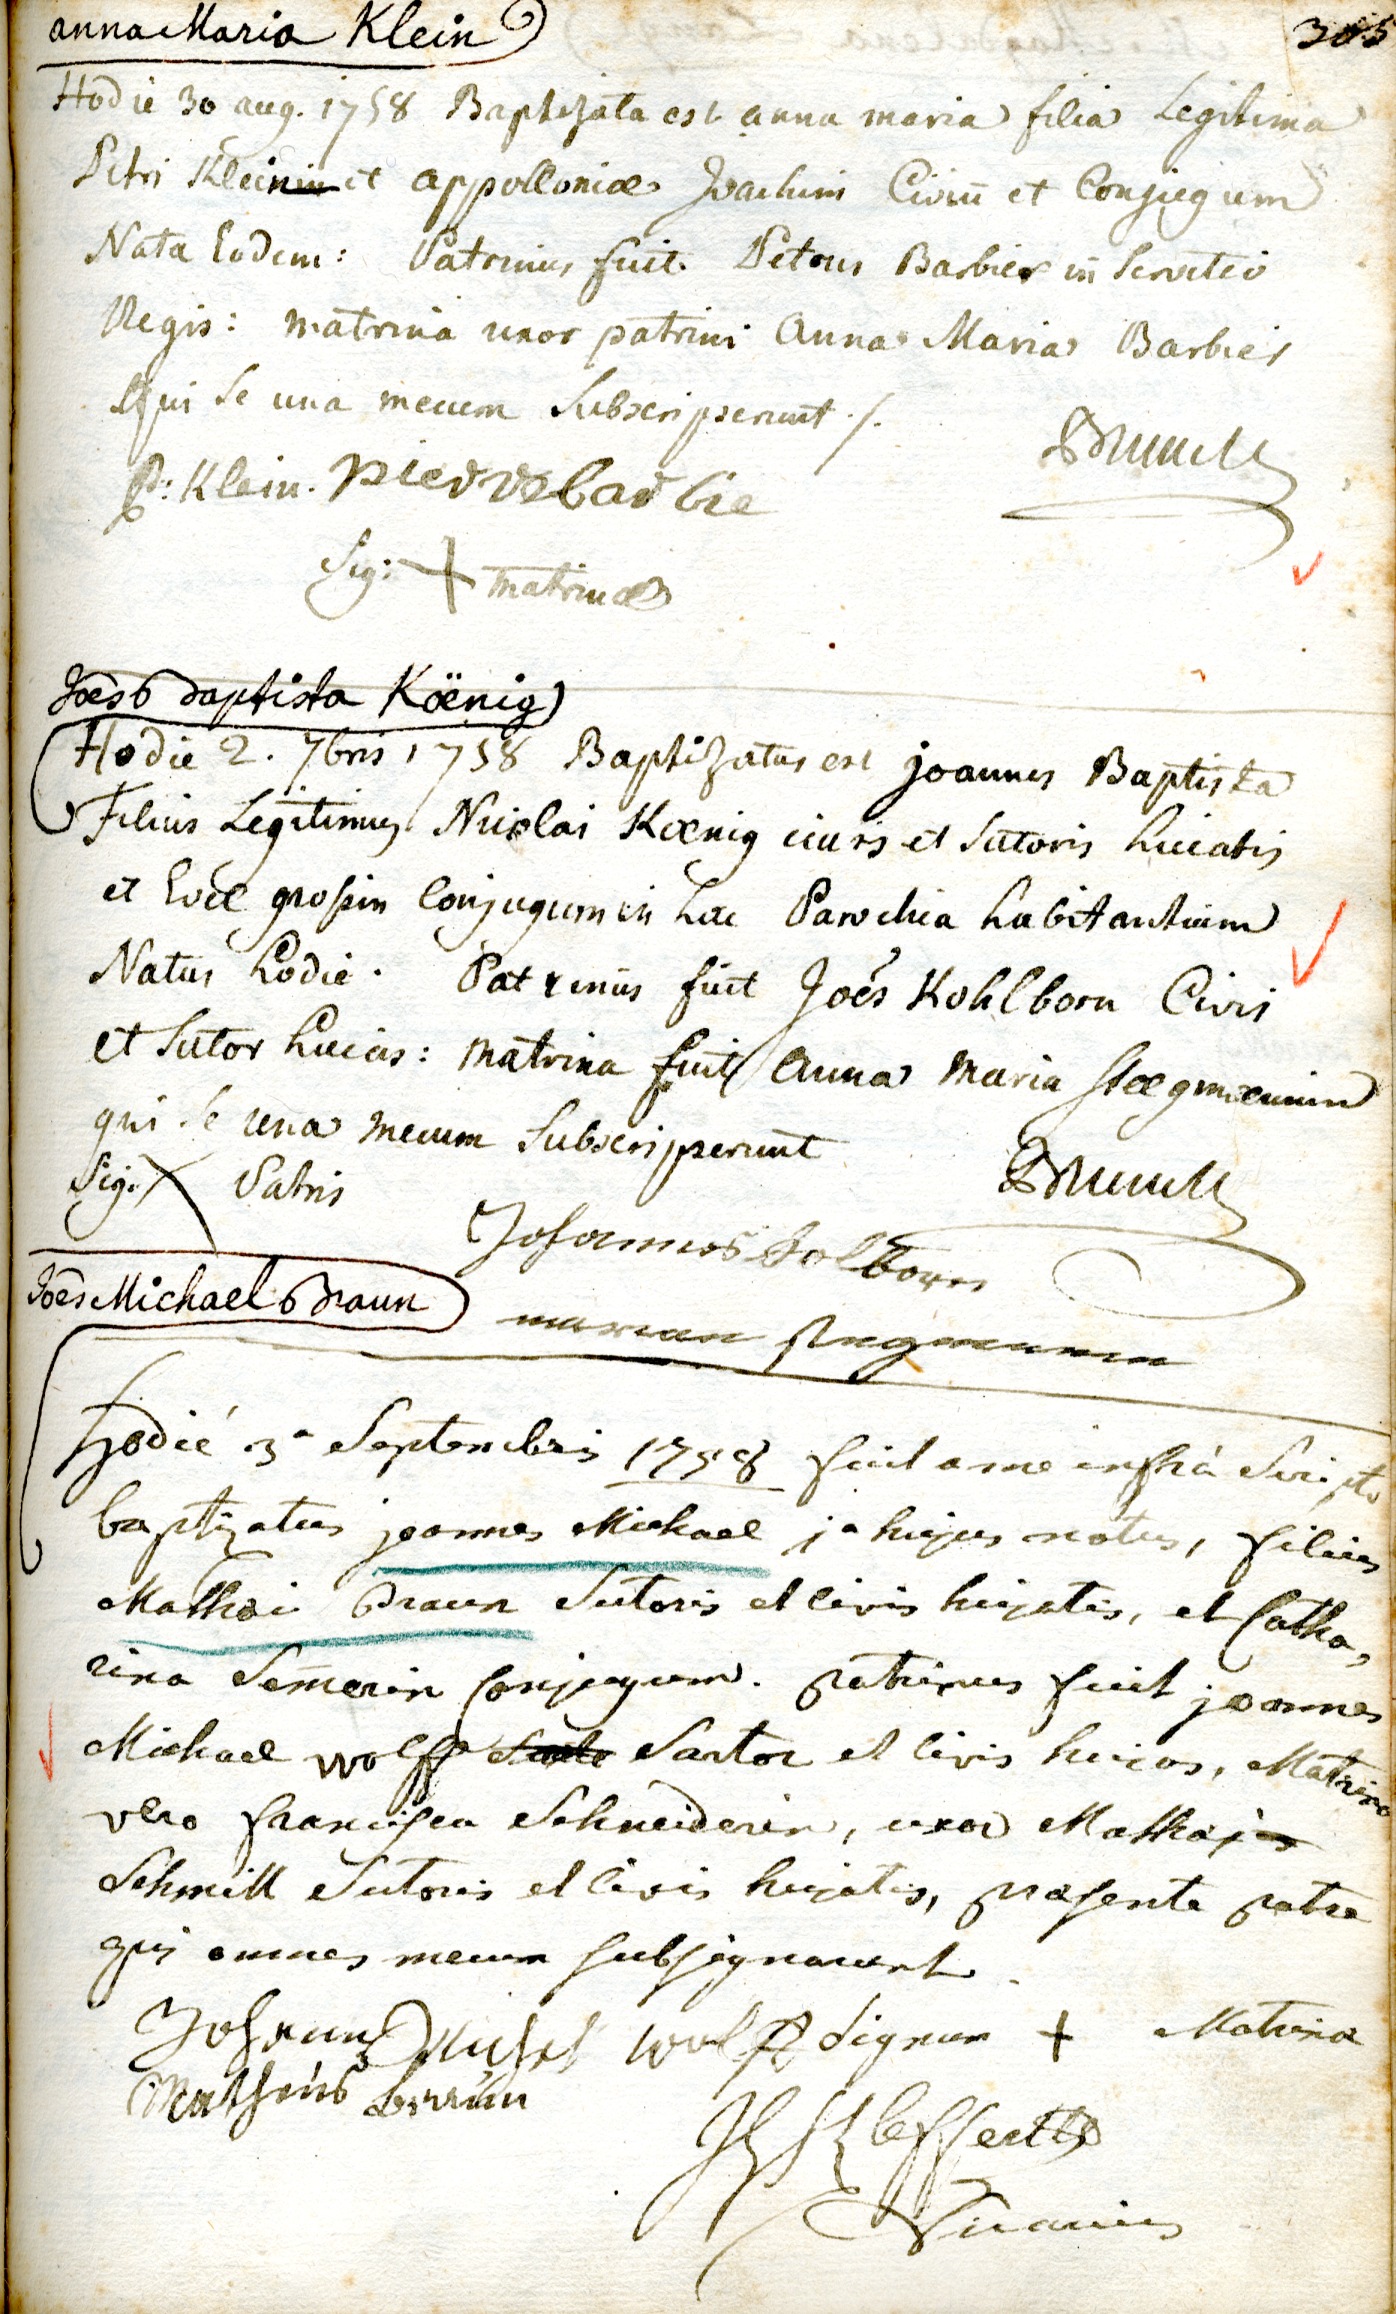 anna Maria Klein
305
Hodie 30 aug. 1758 Baptizata est anna maria filia Legitima
Petri Klein et appolloniæ Joachim Civiū et Conjugum
Nata Eodem: Patrinus fuit Petrus Barbier in Servitio
Regis: matrina uxor patrini Anna Maria Barbier
Qui se una mecum Subscripserunt ./.
P: Klein. pierre barbie
Sig: + matrinæ
Joes baptista Köenig
Hodie 2. 7bris 1758 Baptizatus est joannes Baptista
Filius Legitimus Nicolai Kœnig civis et Sutoris huiatis
et Evæ grosin Conjugum in hac Parochia habitantium
Natus hodie. Patrinus fuit Joēs Kohlborn Civis
et Sutor huias: matrina fuit Anna Maria
qui se una mecum Subscripserunt
Sig. X Patris
Johannes
Joēs Michael Braun
Hodié 3a Septembris 1758 fuit a me infrà Scripto
baptizatus joannes Michael ja hujus natus, filius
Mathæi Braun Sutoris et Civis hujatis, et Catha,
rina Semerin Conjugum. patrinus fuit joannes
Michael wolff Sartor et Civis huias, Matrina
vero francisca Schneiderin, uxor Mathæi
Schmitt Sutoris et Civis hujatis, præsente patre
qui omnes mecum subsignarunt.
Johann Michel wolff Signum + Matrina
Matheis braun
Vicarius